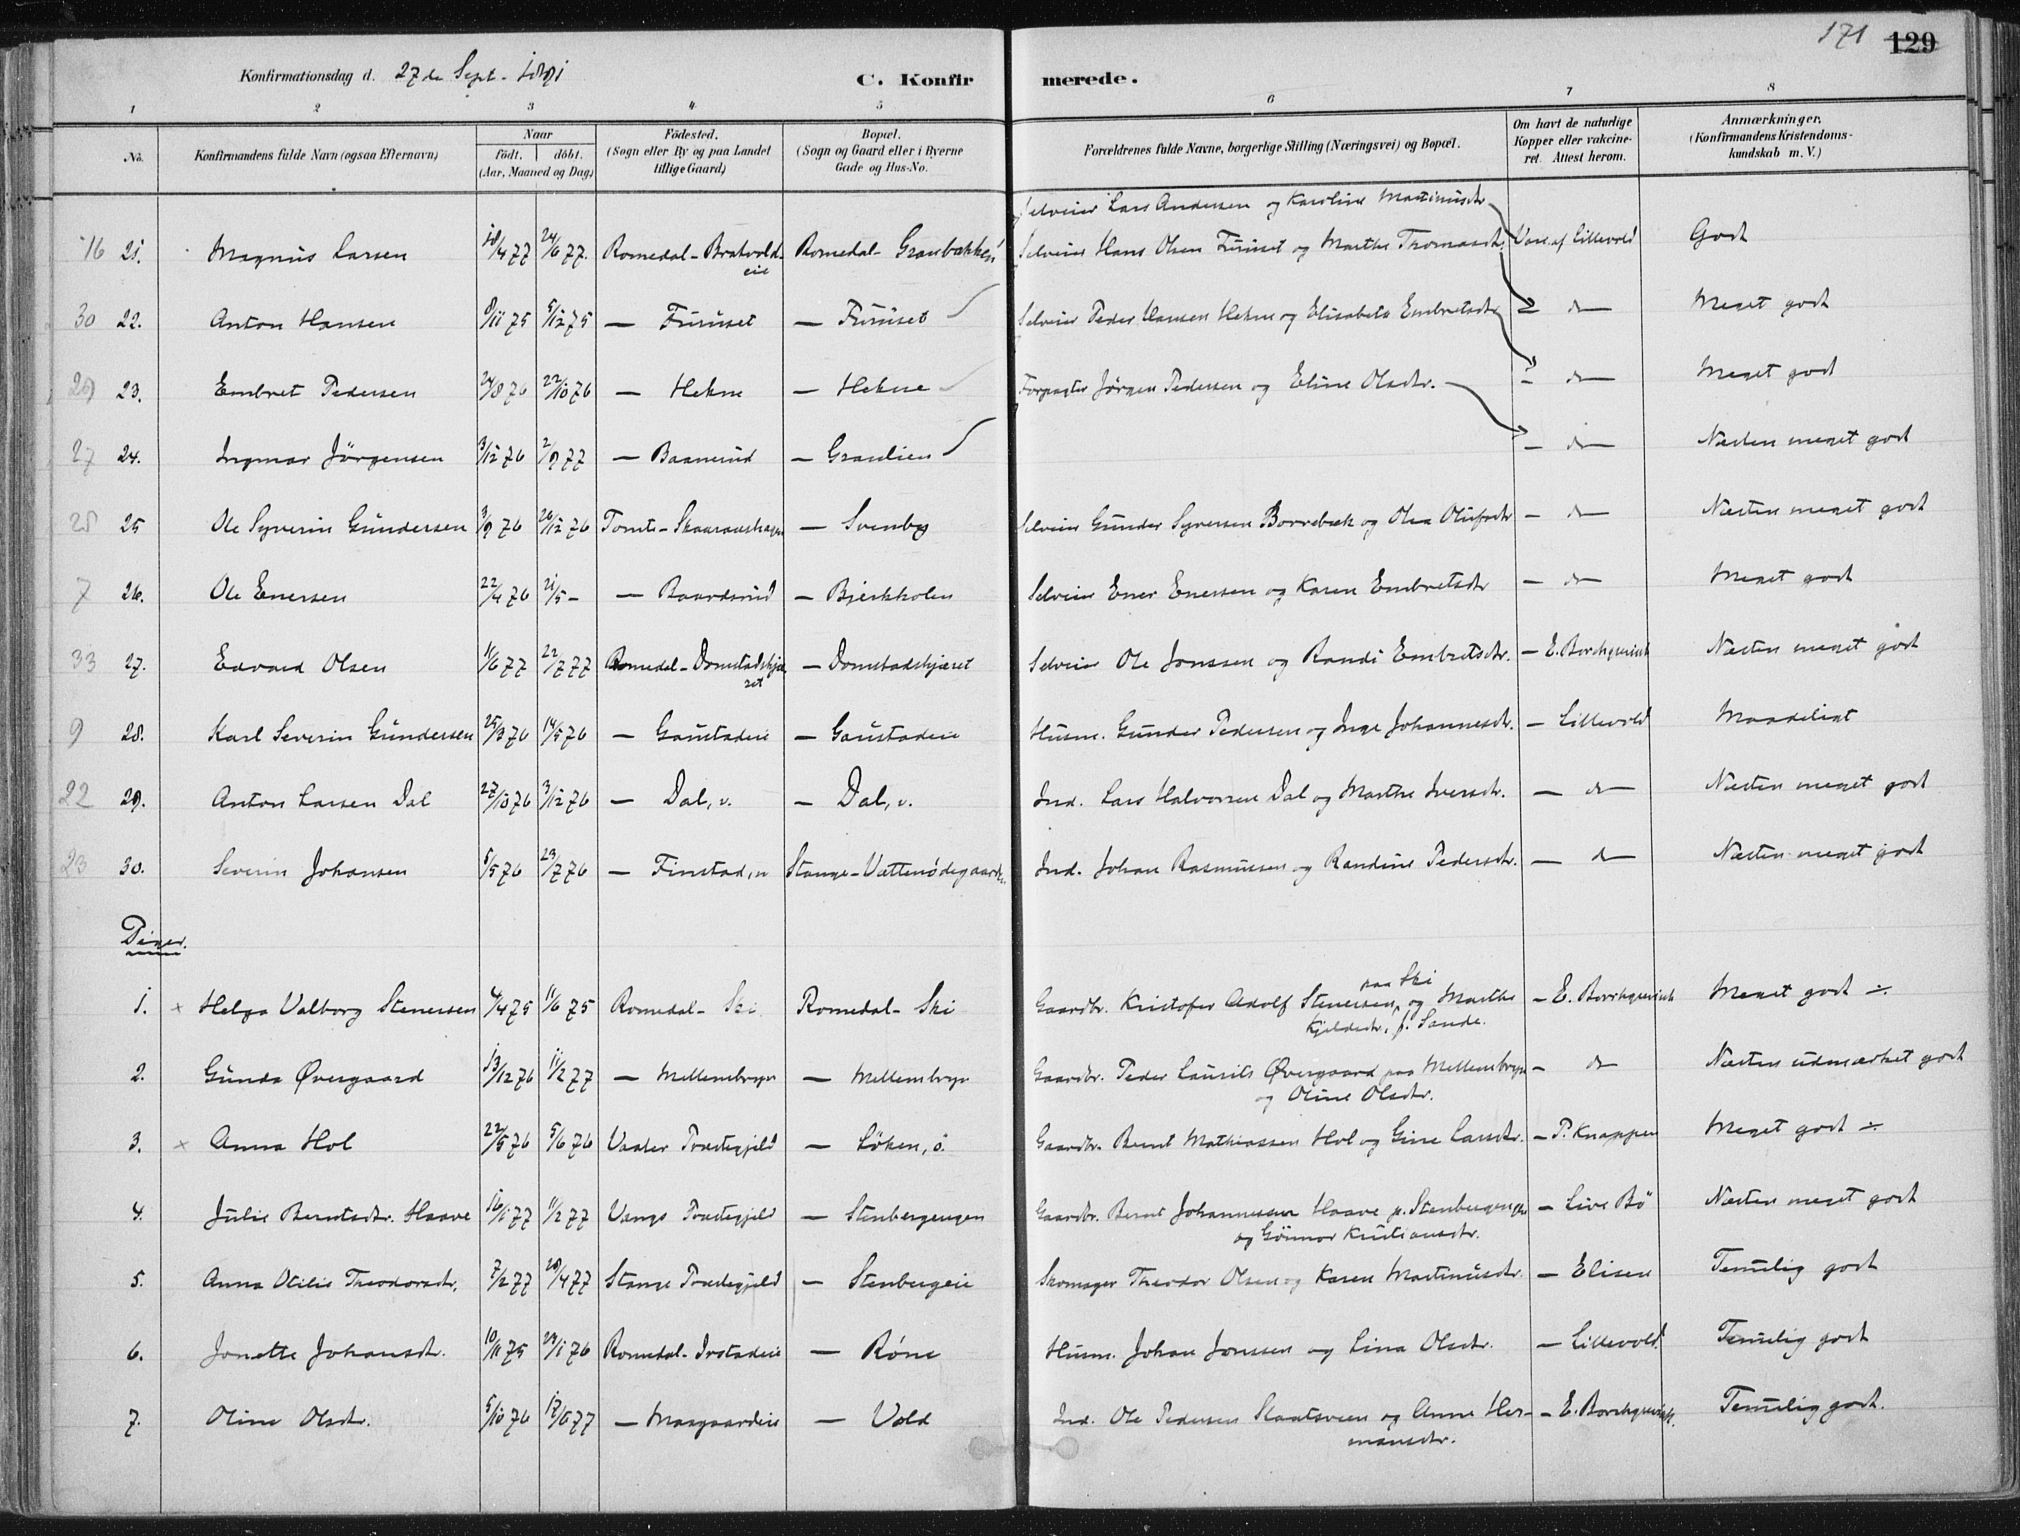 171 129
Konfirmationsdag d. 27de Sept. 1891
C. Konfirmerede.
1 2 3 4 5 6 7 8
No.
Konfirmandens fulde Navn (ogsaa Efternavn)
Naar
födt. döbt.
(Aar, Maaned og Dag)
Födested.
(Sogn eller By og paa Landet
tillige Gaard)
Bopæl.
(Sogn og Gaard eller i Byerne
Gade og Hus-No.
Forældrenes fulde Navne, borgerlige Stilling (Næringsvei) og Bopæl.
Om havt de naturlige
Kopper eller vakcine-
ret. Attest herom.
Anmærkninger.
(Konfirmandens Kristendoms-
kundskab m. V.)
Selveier Lars Andersen og Karoline Martinusdtr
16 21. Magnus Larsen 18/4 77 24/6 77 Romedal - Bratvold- Romedal - Granbakken Selveier Hans Olsen Furuset og Marthe Thomasdtr. Vacc. af Lillevold Godt
eie
30 22. Anton Hansen 8/11 75 5/12 75 — Furuset — Furuset Selveier Peder Hansen Hekne og Elisabeth Embretsdtr — do — Meget godt
29 23. Embret Pedersen 24/8 76 22/10 76 — Hekne — Hekne Forpagter Jörgen Pedersen og Eline Olsdtr. — do — Meget godt
27 24. Ingmar Jörgensen 3/12 76 2/9 77 — Baanerud — Granlien — do — Næsten meget godt
28 25 Ole Syverin Gundersen 3/9 76 26/12 76 Tomte - Skaaraashagen — Svenby Selveier Gunder Syversen Borrebæk og Olea Olufsdtr — do — Næsten meget godt
7 26. Ole Enersen 22/4 76 21/5 - — Baardsrud — Bjerkholen Selveier Ener Enersen og Karen Embretsdtr — do — Meget godt
33 27. Edvard Olsen 1/6 77 22/7 77 Romedal - Domstadskjæ — Domstadskjæret Selveier Ole Jonssen og Randi Embretsdtr. — E. Borchgrevink Næsten meget godt
ret
9 28. Karl Severin Gundersen 25/3 76 14/5 76 — Gaustadeie — Gaustadeie Husm. Gunder Pedersen og Inge Johannesdtr. — Lillevold Maadeligt
22 29. Anton Larsen Dal 27/10 76 3/12 76 — Dal, v. — Dal, v. Ind. Lars Halvorsen Dal og Marthe Iversdtr. — do — Næsten meget godt
23 30. Severin Johansen 5/5 76 23/7 76 — Finstad, n Stange - Vættenödegaarden Ind. Johan Rasmussen og Randine Pedersdtr. — do — Næsten meget godt
Piger.
paa Ski
1. × Helga Valborg Stenersen 4/4 75 11/6 75 Romedal - Ski Romedal - Ski Gaardbr. Kristofer Adolf Stenersen, og Marthe — E. Borchgrevink Meget godt ÷
Kjeldsdtr, f. Sande.
2. Gunda Øvergaard 13/12 76 11/2 77 — Mellembryn — Mellembryn Gaardbr. Peder Laurits Øvergaard paa Mellembryn — do Næsten udmærket godt
og Oline Olsdtr.
3. × Anna Hol 22/5 76 5/6 76 Vaaler Præstegjeld — Löken, ö. Gaardbr. Bernt Mathiassen Hol og Gine Larsdtr. — P. Knappen Meget godt ÷
4. Julie Berntsdtr. Haave 16/1 77 11/2 77 Vangs Præstegjeld — Stenbergengen Gaardbr. Bernt Johannessen Haave p. Stenbergengen — Live Bö Næsten meget godt
og Gunnor Kristiansdtr.
5. Anna Otilie Theodorsdtr. 7/2 77 28/4 77 Stange Præstegjeld — Stenbergeie Skomager Theodor Olsen og Karen Martinusdtr. — Elisen Temmelig godt
6. Jonette Johansdtr. 10/11 75 23/1 76 Romedal - Ivstadeie — Röne Husm. Johan Jonssen og Lina Olsdtr. — Lillevold. Temmelig godt
7. Oline Olsdtr. 5/10 76 17/6 77 — Maagaardeie — Vold Ind. Ole Pedersen Slaatsveen og Anne Her- — E. Borchgrevink. Temmelig godt.
mansdtr.